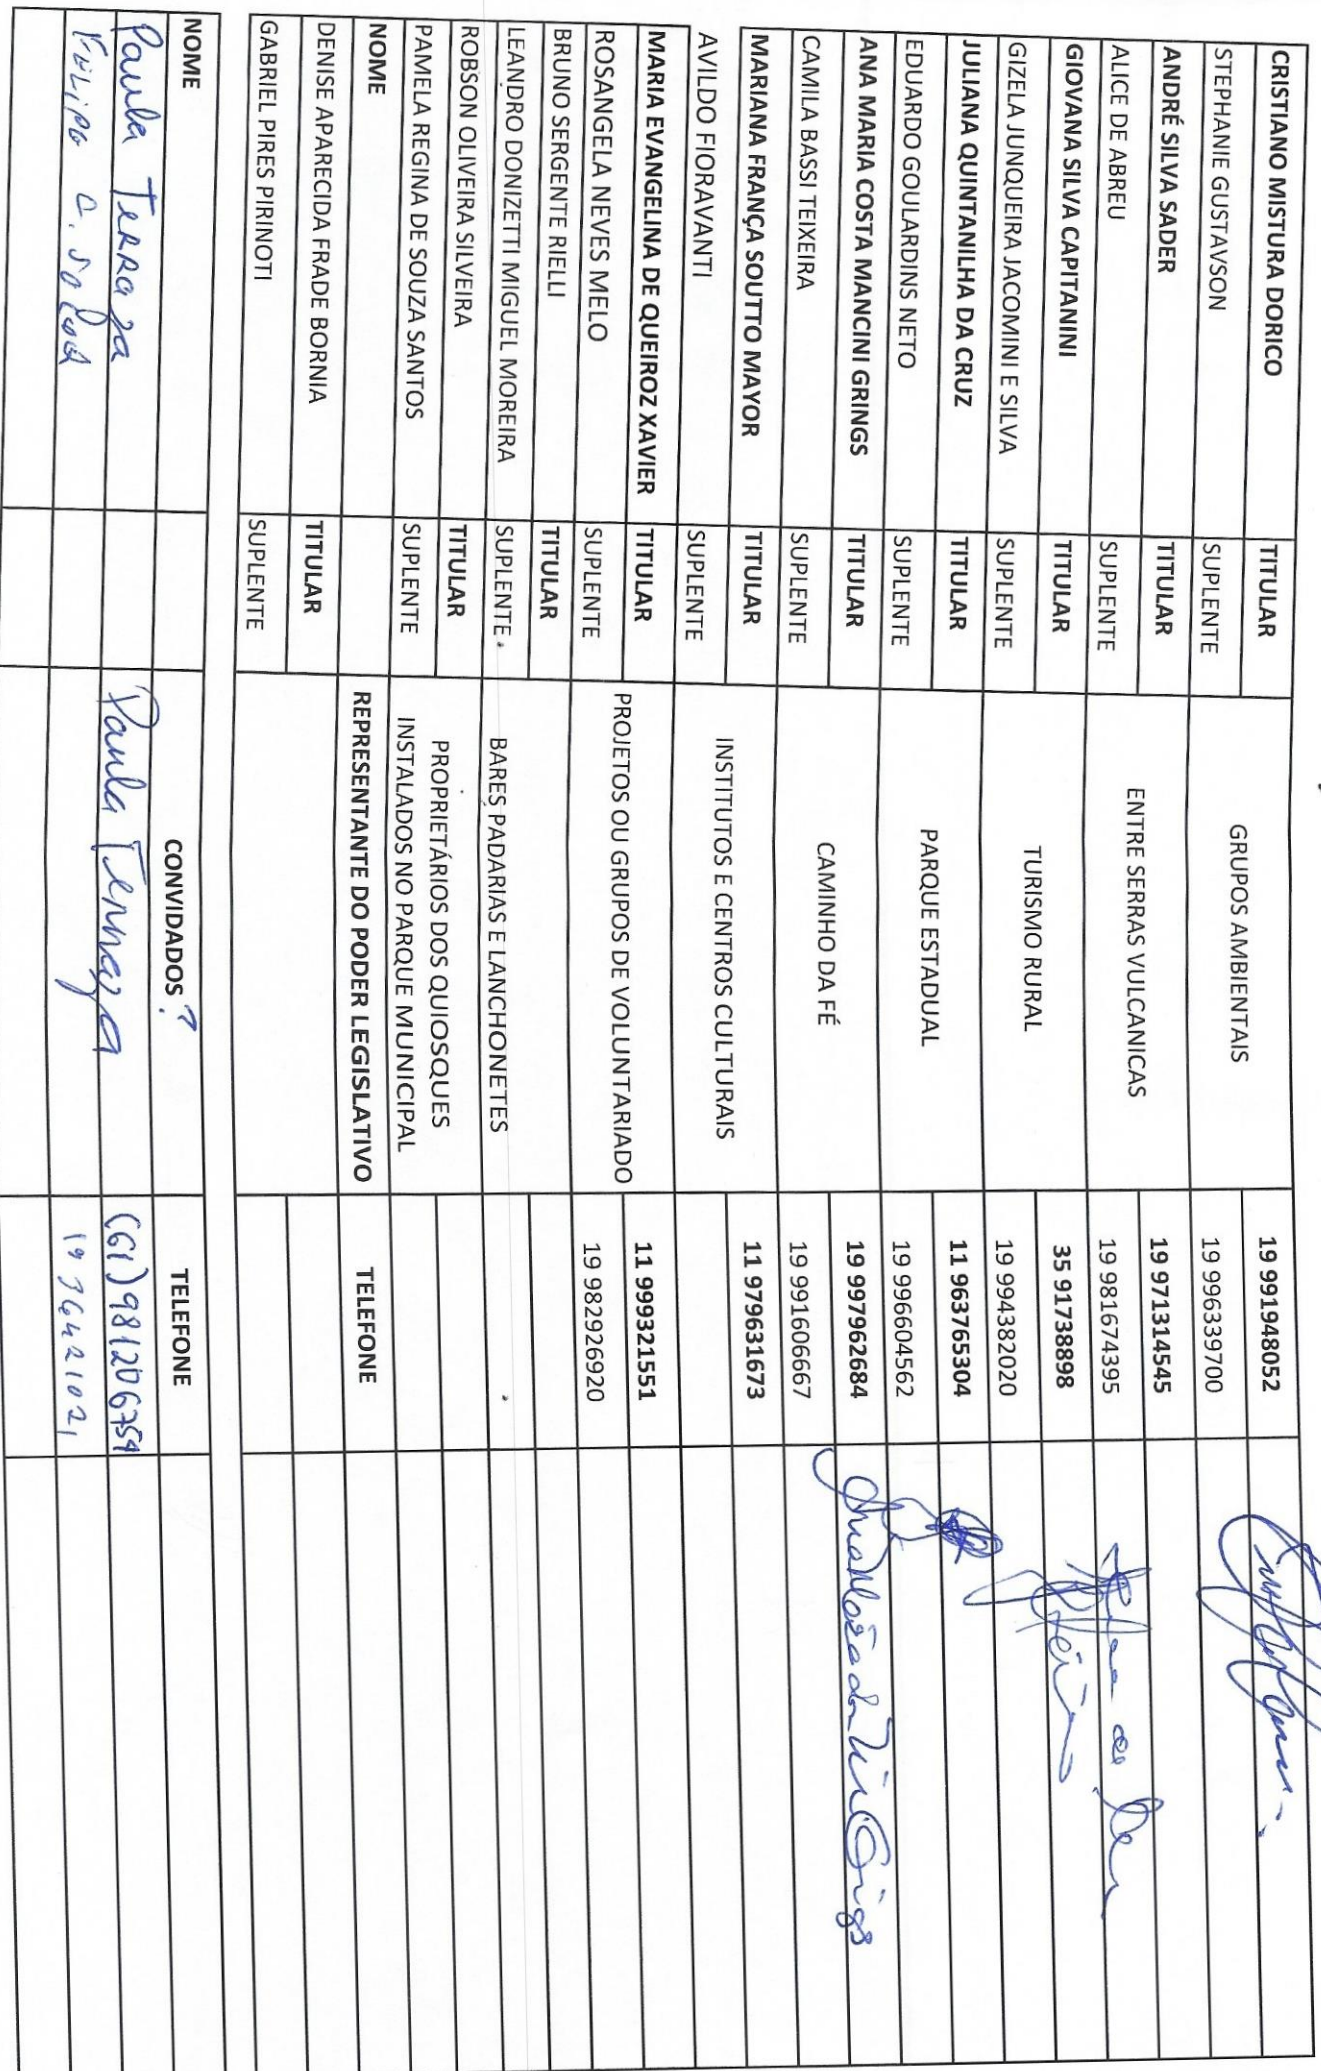 CRISTIANO MISTURA DORICO TITULAR GRUPOS AMBIENTAIS 19 991948052
STEPHANIE GUSTAVSON SUPLENTE 19 996339700
ANDRÉ SILVA SADER TITULAR ENTRE SERRAS VULCANICAS 19 971314545
ALICE DE ABREU SUPLENTE 19 981674395
GIOVANA SILVA CAPITANINI TITULAR TURISMO RURAL 35 91738898
GIZELA JUNQUEIRA JACOMINI E SILVA SUPLENTE 19 994382020
JULIANA QUINTANILHA DA CRUZ TITULAR PARQUE ESTADUAL 11 963765304
EDUARDO GOULARDINS NETO SUPLENTE 19 996604562
ANA MARIA COSTA MANCINI GRINGS TITULAR CAMINHO DA FÉ 19 997962684
CAMILA BASSI TEIXEIRA SUPLENTE 19 991606667
MARIANA FRANÇA SOUTTO MAYOR TITULAR INSTITUTOS E CENTROS CULTURAIS 11 979631673
AVILDO FIORAVANTI SUPLENTE
MARIA EVANGELINA DE QUEIROZ XAVIER TITULAR PROJETOS OU GRUPOS DE VOLUNTARIADO 11 999321551
ROSANGELA NEVES MELO SUPLENTE 19 982926920
BRUNO SERGENTE RIELLI TITULAR BARES PADARIAS E LANCHONETES
LEANDRO DONIZETTI MIGUEL MOREIRA SUPLENTE
ROBSON OLIVEIRA SILVEIRA TITULAR PROPRIETÁRIOS DOS QUIOSQUES
PAMELA REGINA DE SOUZA SANTOS SUPLENTE INSTALADOS NO PARQUE MUNICIPAL
NOME REPRESENTANTE DO PODER LEGISLATIVO TELEFONE
DENISE APARECIDA FRADE BORNIA TITULAR
GABRIEL PIRES PIRINOTI SUPLENTE
NOME CONVIDADOS TELEFONE
Paula Terraza Paula Terraza (61) 981206754
19 36421021